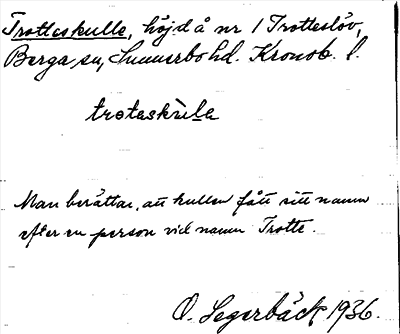 Trotteskulle, höjd å nr 1 Trotteslöv,
Berga sn, Sunnerbo hd. Kronob. l.
trotaskùla
Man berättar, att kullen fått sitt namn
efter en person vid namn Trotte.
O. Segerbäck 1936.